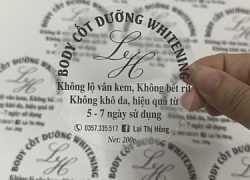 BODY CỐT DƯỠNG WHITENING
LH
Không lộ vân kem, Không bết rít
Không khô da, hiệu quả từ
5 - 7 ngày sử dụng
0357.335.517 Lại Thị Hồng
Net: 200g
BODY CỐT DƯỠNG WHITENING